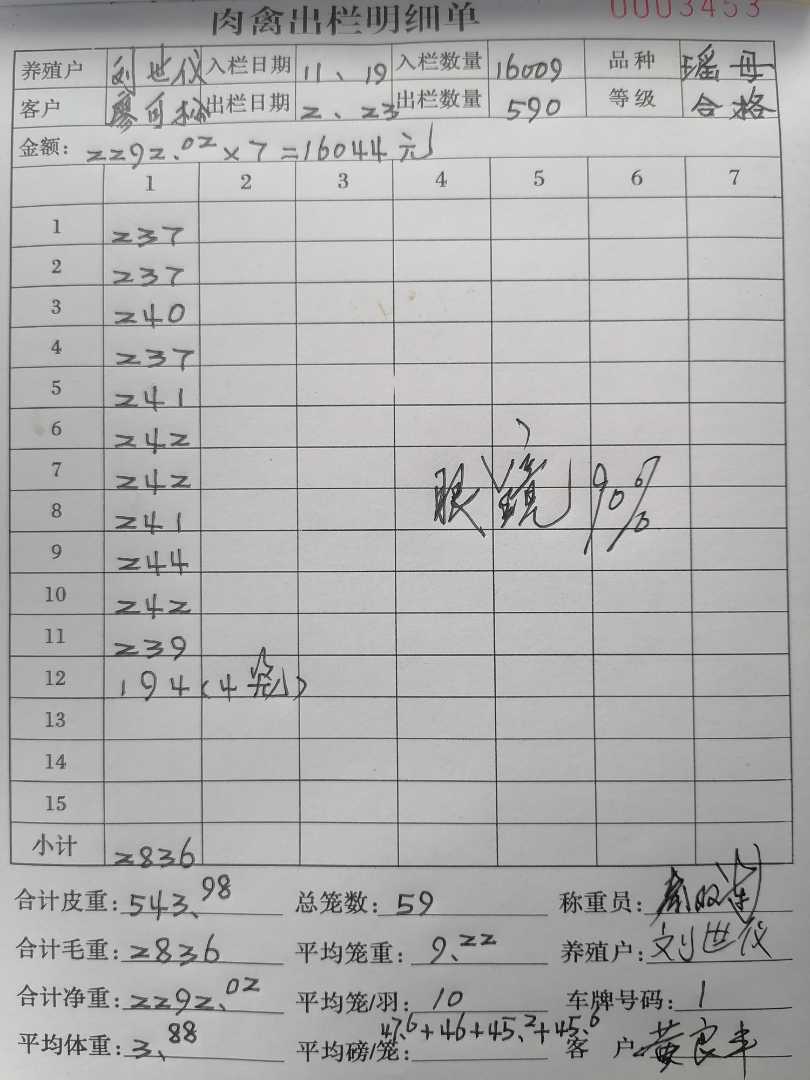 肉禽出栏明细单 0003453
养殖户 刘世仪 入栏日期 11、19 入栏数量 16009 品种 瑶母
客户 廖可松 出栏日期 2、23 出栏数量 590 等级 合格
金额: 2292.02×7=16044元
1 2 3 4 5 6 7
1 237
2 237
3 240
4 237
5 241
6 242
7 242
8 241
9 244
10 242
11 239
12 194(4笼)
13
14
15
眼镜90%
小计 2836
合计皮重: 543、98 总笼数: 59 称重员:
合计毛重: 2836 平均笼重: 9、22 养殖户: 刘世仪
合计净重: 2292、02 平均笼/羽: 10 车牌号码: 1
平均体重: 3、88 平均磅/笼: 47.6+46+45.2+45.6 客 户: 黄良丰